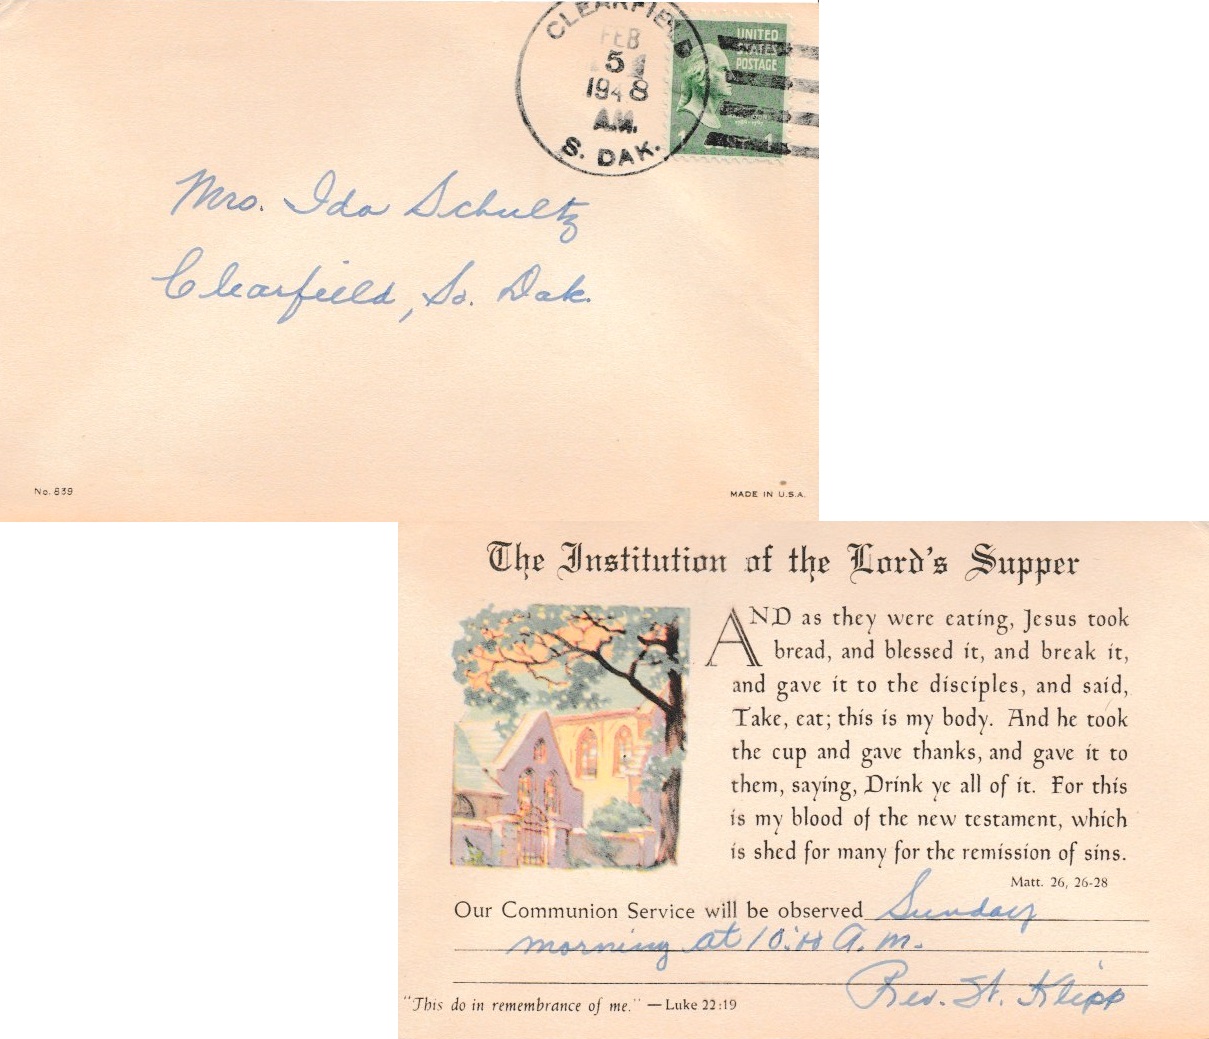 CLEARFIELD
FEB
5
1948
A.M.
S. DAK.
UNITED
STATES
POSTAGE
1 1
Mrs. Ida Schultz
Clearfield, So. Dak.
No. 839
MADE IN U.S.A.
The Institution of the Lord's Supper
AND as they were eating, Jesus took
bread, and blessed it, and break it,
and gave it to the disciples, and said,
Take, eat; this is my body. And he took
the cup and gave thanks, and gave it to
them, saying, Drink ye all of it. For this
is my blood of the new testament, which
is shed for many for the remission of sins.
Matt. 26, 26-28
Our Communion Service will be observed Sunday
morning at A.M.
Rev. St. Klipp
"This do in remembrance of me." — Luke 22:19